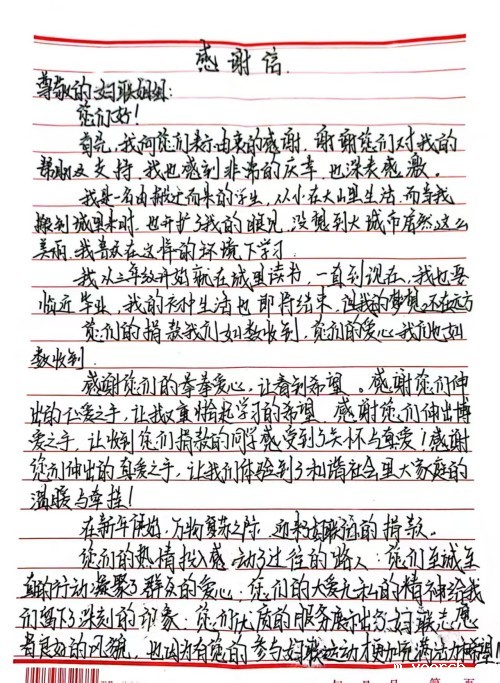 感谢信.
尊敬的妇联姐姐:
您们好!
首先,我向您们表示由衷的感谢,谢谢您们对我的
帮助及支持,我也感到非常的庆幸,也深表感激。
我是一名由搬迁而来的学生,从小在大山里生活,而当我
搬到城里来时,也开扩了我的眼见,没想到大城市居然这么
美丽,我喜欢在这样的环境下学习.
我从三年级开始就在城里读书,一直到现在,我也要
临近毕业,我的初中生活也即将结束,但我的梦想还在远方
您们的捐款我们如数收到,您们的爱心我们也如
数收到.
感谢您们的拳拳爱心,让看到希望。感谢您们伸
出的仁爱之手,让我重拾起学习的希望,感谢您们伸出博
爱之手,让收到您们捐款的同学感受到了关怀与真爱!感谢
您们伸出的真爱之手,让我们体验到了和谐社会里大家庭的
温暖与牵挂!
在新年伊始,万物复苏之际,迎来妇联的捐款.
您们的热情投入感动了过往的路人;您们至诚至
真的行动凝聚了群众的爱心;您们的大爱无私的精神给我
们留下了深刻的印象;您们优质的服务展示出了妇联志愿
者良好的风貌,也因为有您的参与妇联运动才更加充满活力和希望!
年 月 日 第 页